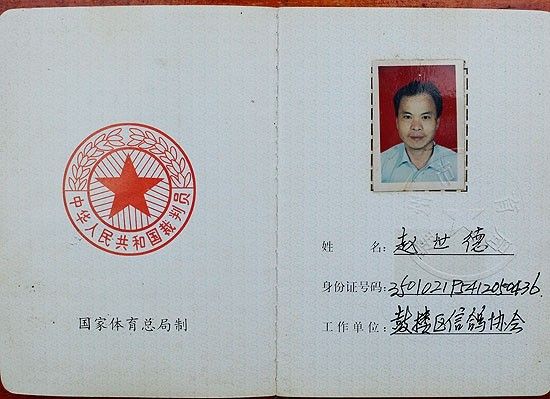 中华人民共和国裁判员
国家体育总局制
姓 名：赵世德
身份证号码：350102195412050436
工作单位：鼓楼区信鸽协会